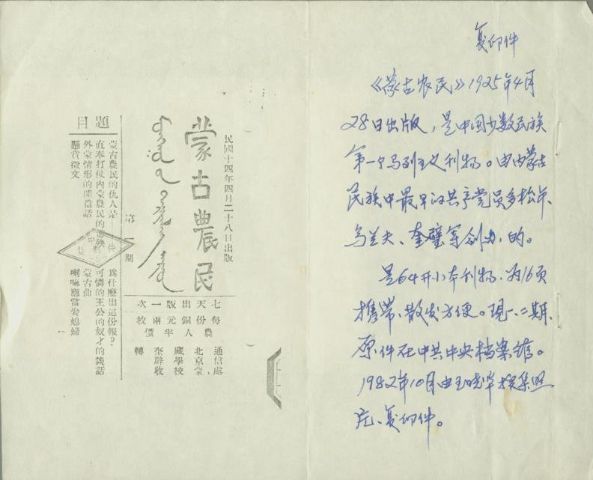 民國十四年四月二十八日出版
蒙古農民
第一期
七天出版一次
每份銅元兩枚
農人半價
通信處
北京蒙
藏學校
奎辟收
轉
題目
為什麼出這份報？
蒙古農民的仇人是
可憐的王公的奴才的談話
直奉打仗內蒙農民的
蒙古曲
外蒙情形的
喇嘛廟當安媳婦
懸賞徵文
复印件
《蒙古农民》1925年4月
28日出版，是中国少数民族
第一个马列主义刊物。由内蒙古
民族中最早的共产党员多松年、
乌兰夫、奎璧等创办的。
是64开小本刊物，为16页
携带、散发方便。现一、二期
原件在中共中央档案馆。
1982年10月由王晓华採集照
片、复印件。